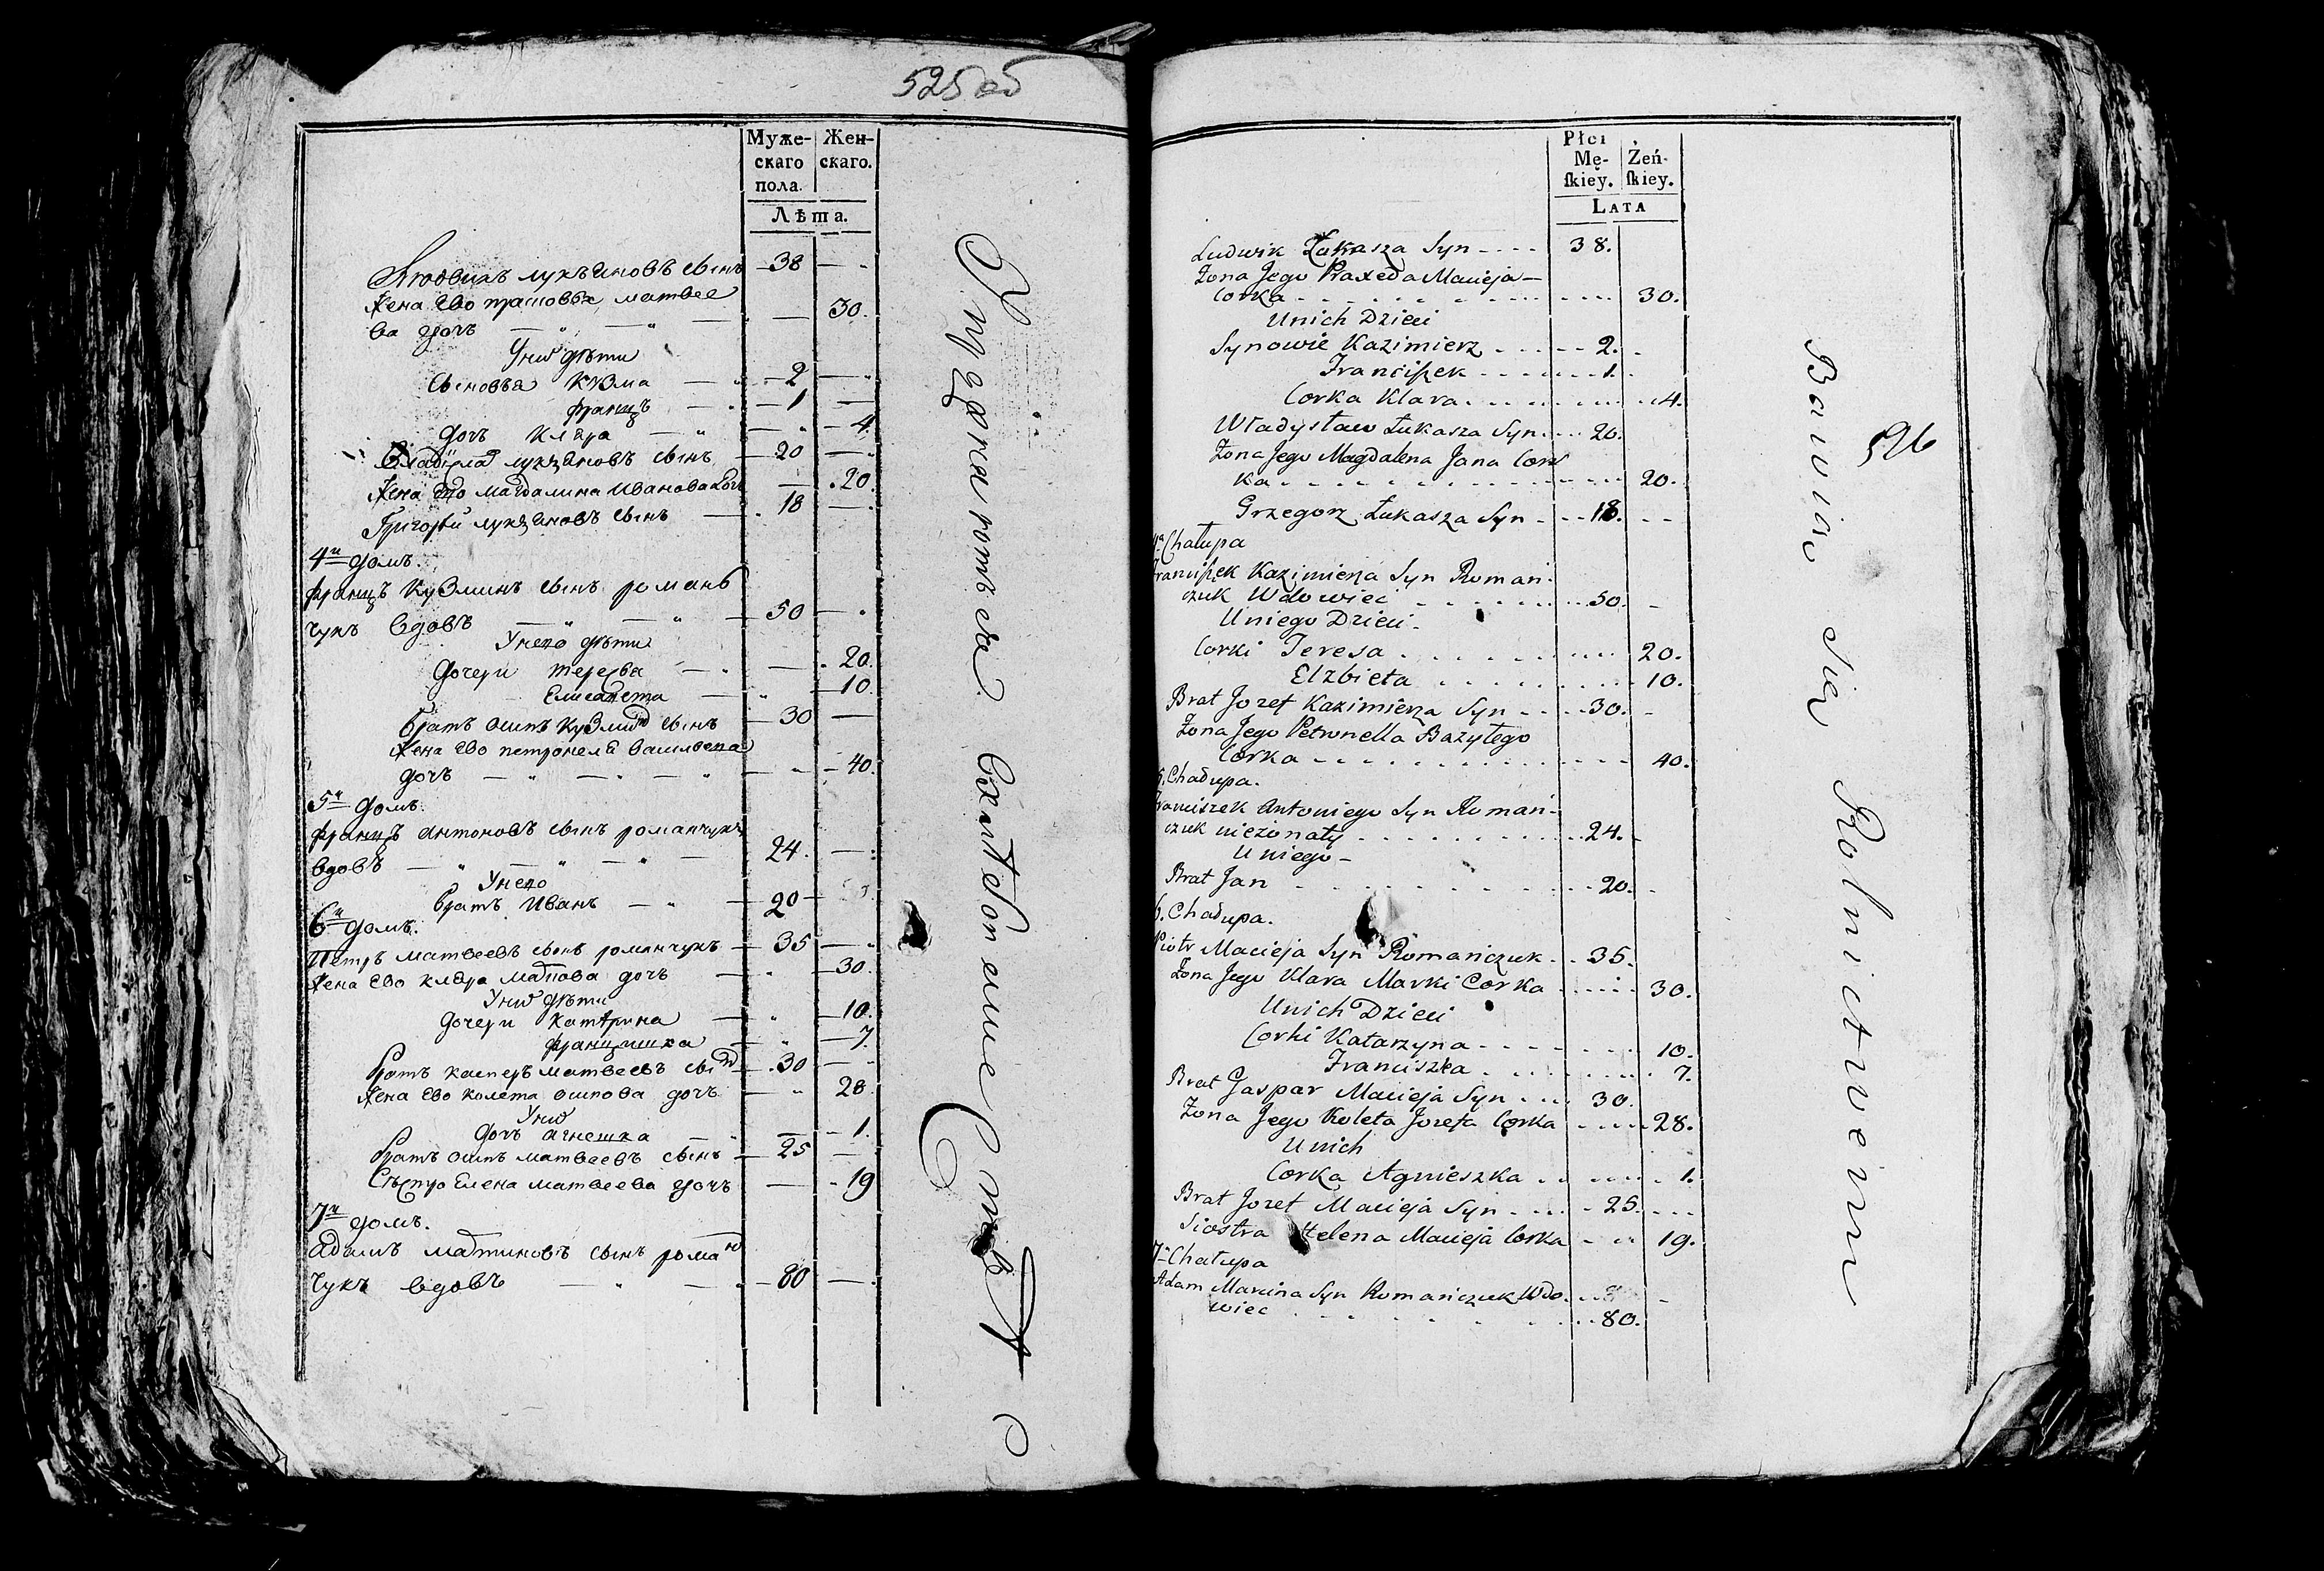 525 об
Муже- Жен-
скаго скаго.
пола.
Лѣта.
Людвикъ лукъяновъ сынъ 38
жена Ево матвее
ва дочъ 30.
Уних дѣти
Сыновья Кузма 2
францъ 1
дочъ клара 4
лукъяновъ сынъ 20
жена Ево магдалина Иванова доч 20.
Григорѣй лукъяновъ сынъ 18
4й домъ.
францъ Кузминъ сынъ роман
чукъ вдовъ 50
Унего дѣти
дочери 20.
Елисавета 10.
братъ осипъ Кузмин сынъ 30
жена Ево петронеля василвева
дочъ 40.
5й домъ.
францъ антоновъ сынъ романчукъ
вдовъ 24.
Унего
братъ Иванъ 20
6й домъ.
Петръ матвеевъ сынъ романчукъ 35
жена Ево клара маркова дочъ 30.
Уних дѣти
дочери катерина 10.
францишка 7.
братъ касперъ матвеевъ сынъ 30
жена Ево колета осипова дочъ 28.
Уних
дочъ агнешка 1.
братъ осипъ матвеевъ сынъ 25
Сестра Елена матвеева дочъ 19
7й домъ.
адамъ мартиновъ сынъ роман
чукъ вдовъ 80
Płci
Mę- Żeń-
ſkiey. ſkiey.
LATA
Ludwik Łukasza Syn 38.
Zona Jego Praxeda Macieja
Corka 30.
Unich Dzieci
Synowie Kazimierz 2.
Franciszek 1.
Corka Klara 4.
Władysław Łukasza Syn 20.
Zona Jego Magdalena Jana Cor
ka 20.
Grzegorz Łukasza Syn 18.
4a Chałupa
Franciszek Kazimierza Syn Roman-
czuk Wdowiec 50.
Uniego Dzieci
Corki Teresa 20.
Elzbieta 10.
Brat Jozef Kazimierza Syn 30.
Zona Jego Petronella Bazylego
Corka 40.
5. Chałupa.
Franciszek Antoniego Syn Roman-
czuk niezonaty 24.
Uniego
Brat Jan 20.
6. Chałupa.
Piotr Macieja Syn Romańczuk 35.
Zona Jego Klara Marki Corka 30.
Unich Dzieci
Corki Katarzyna 10.
Franciszka 7.
Brat Gaspar Macieja Syn 30.
Zona Jego Koleta Jozefa Corka 28.
Unich
Corka Agnieszka 1.
Brat Jozef Macieja Syn 25.
Siostra Helena Macieja Corka 19.
7a Chałupa
Adam Marcina Syn Romańczuk Wdo-
wiec 80.
Bawią się Rolnictwem
526